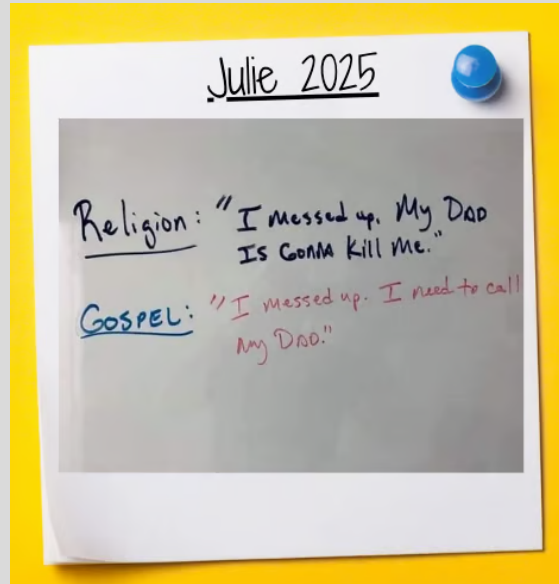 Julie 2025
Religion: "I messed up. My DAD
Is GonnA Kill Me."
GOSPEL: "I messed up. I need to call
my DAD."